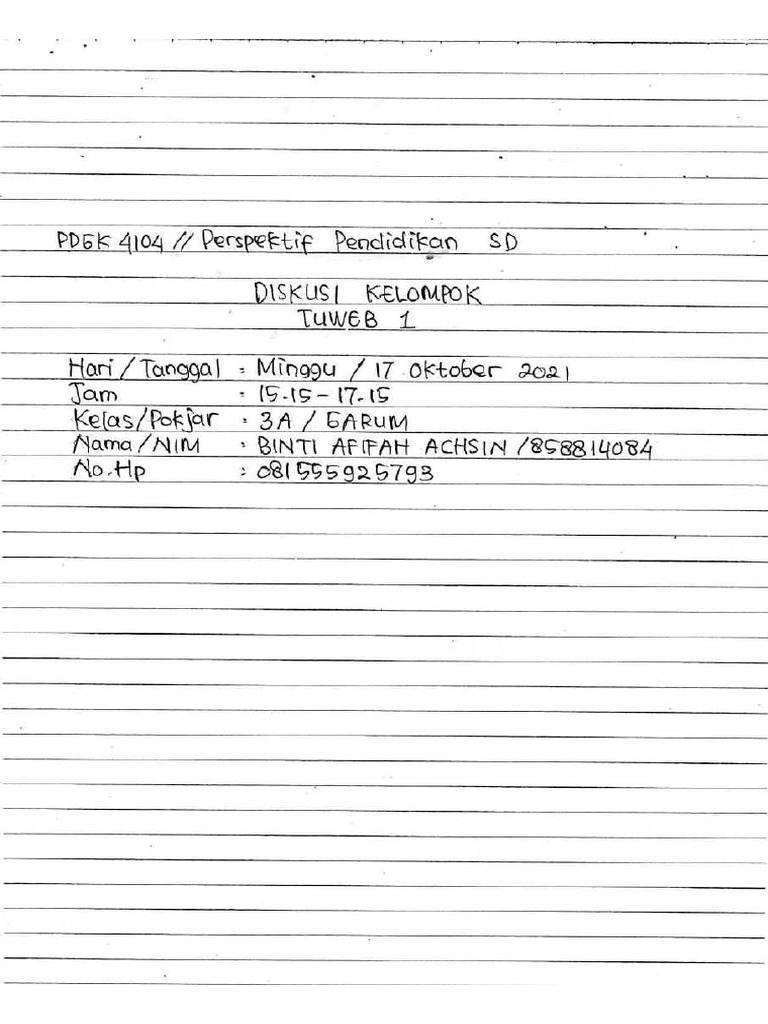 PDGK 4104 // Perspektif Pendidikan SD
DISKUSI KELOMPOK
TUWEB 1
Hari / Tanggal : Minggu / 17 Oktober 2021
Jam : 15.15 - 17.15
Kelas/Pokjar : 3A / GARUM
Nama/NIM : BINTI AFIFAH ACHSIN /858814084
No.Hp : 081555925793